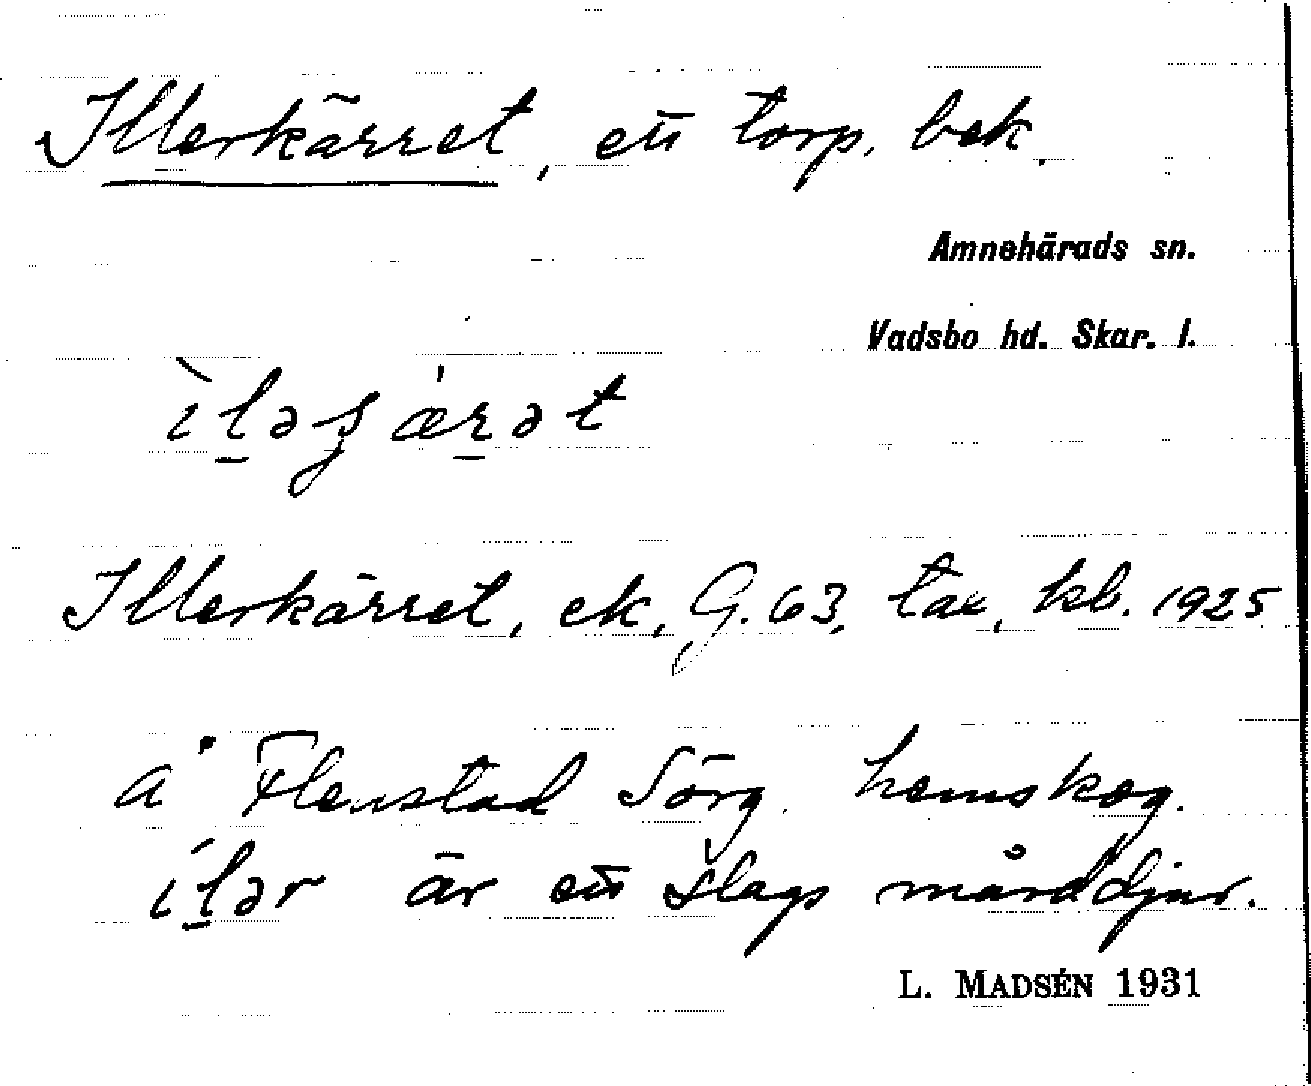 Illerkärret, ett torp. bek.
Amnehärads sn.
Vadsbo hd. Skar. l.
Illerkärret, ek, G. 63, tax, kb. 1925
å Flenstad Sörg. hemskog.
är ett slags mårddjur.
L. MADSÉN 1931